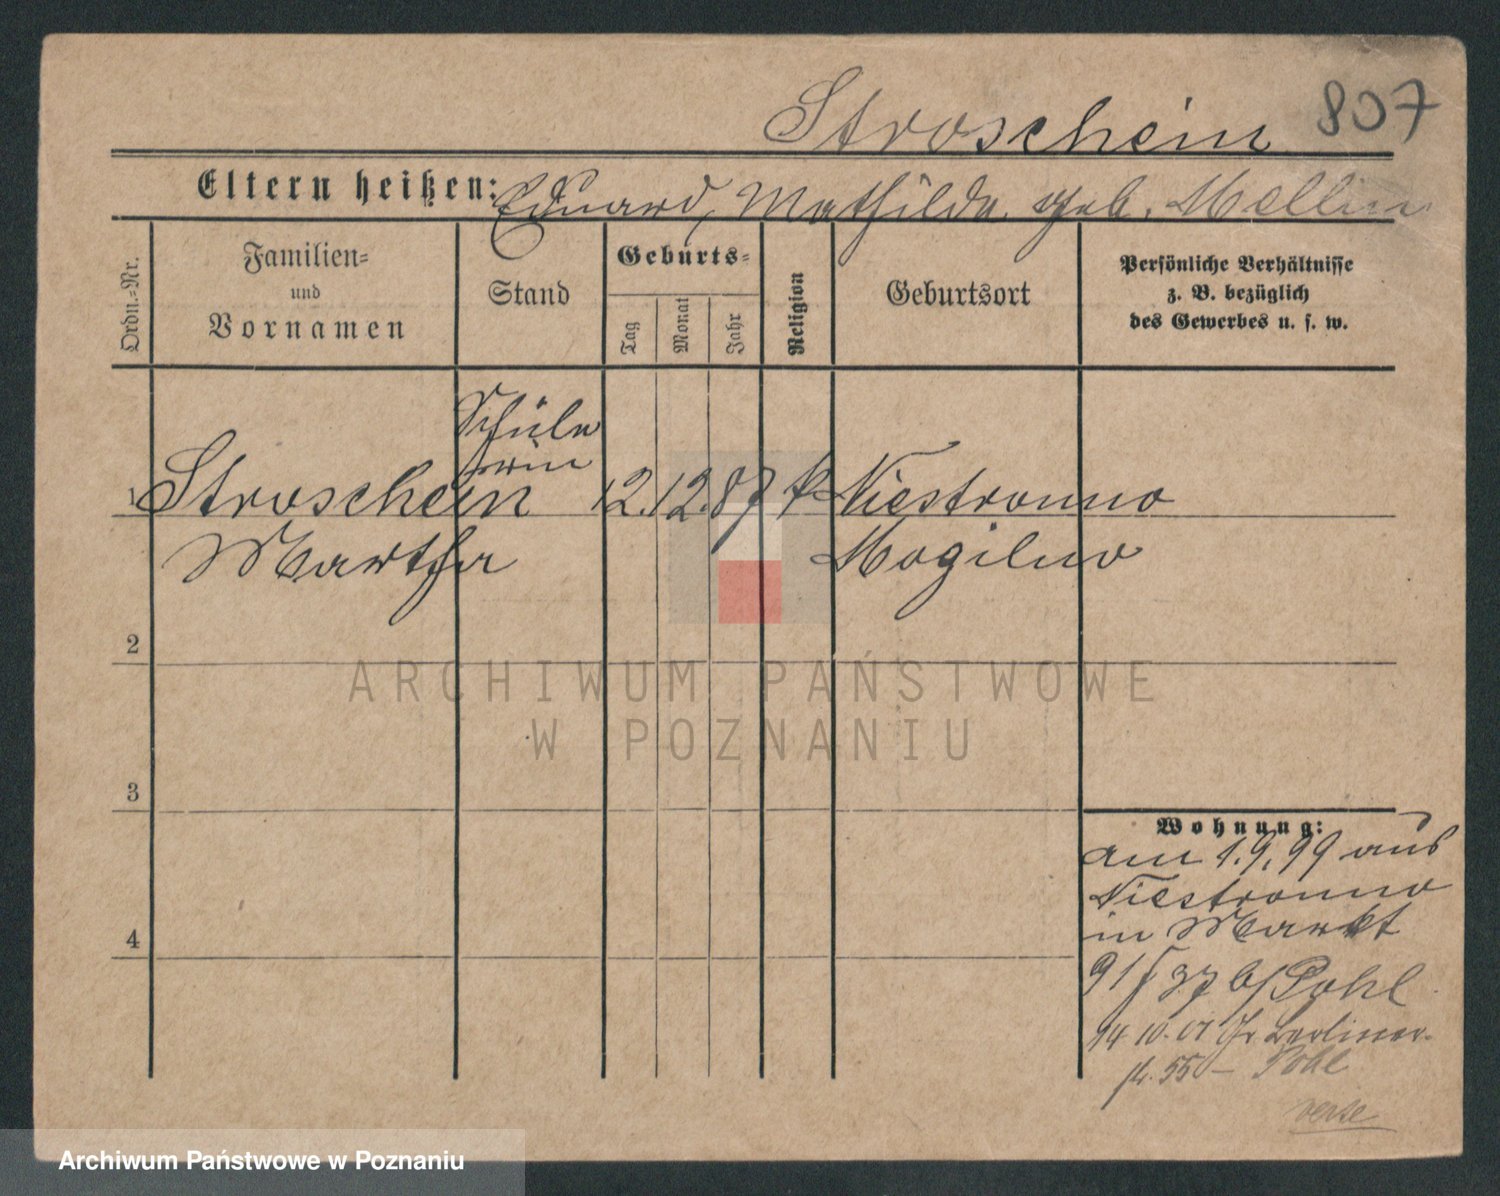 Stroschein 807
Eltern heißen: Eduard, Mathilde geb. Mellin
Ordn.-Nr.
Familien-
und
Vornamen
Stand
Geburts-
Tag
Monat
Jahr
Religion
Geburtsort
Persönliche Verhältnisse
z. B. bezüglich
des Gewerbes u. s. w.
Schüle
rin
1 Stroschein 12. 12. 87 k. Niestronno
Martha Mogilno
2
3
4
ARCHIWUM PAŃSTWOWE
W POZNANIU
Wohnung:
am 1.9.99 aus
Niestronno
in Markt
91 37 b/Pohl
14 10. 01 Berliner-
str. 55 – Pohl
Archiwum Państwowe w Poznaniu